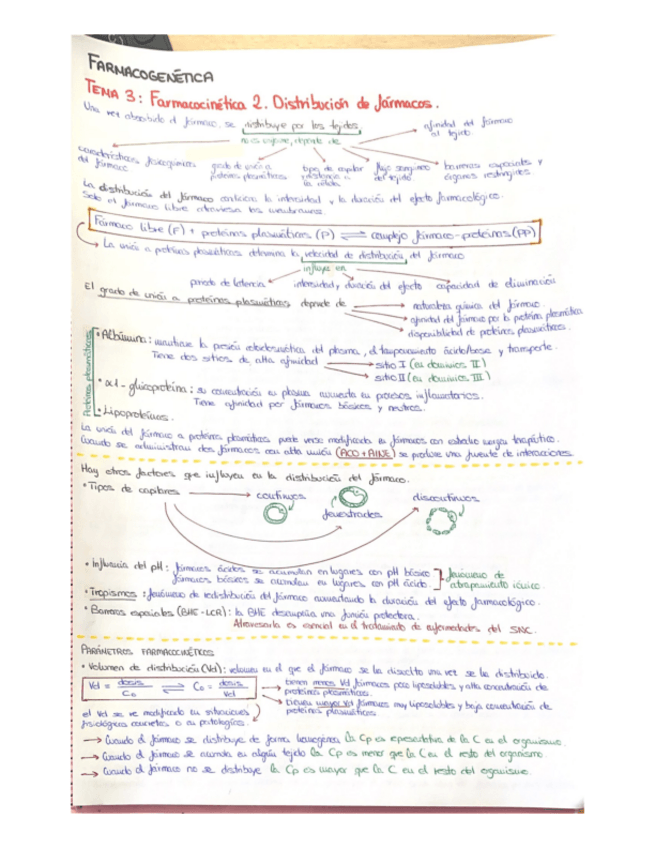 FARMACOGENÉTICA
TEMA 3: Farmacocinética 2. Distribución de fármacos.
Una vez absorbido el fármaco, se distribuye por los tejidos,
afinidad del fármaco
al tejido.
no es uniforme, depende de
características fisicoquímicas
del fármaco.
grado de unión a
proteínas plasmáticas
tipos de capilar
y
la célula
flujo sanguíneo
del tejido
barreras especiales y
órganos restringidos
La distribución del fármaco condiciona la intensidad y la duración del efecto farmacológico.
Solo el fármaco libre atraviesa las membranas.
Fármaco libre (F) + proteínas plasmáticas (P) ⇌ complejo fármaco-proteínas (PP)
La unión a proteínas plasmáticas determina la velocidad de distribución del fármaco
influye en
periodo de latencia
intensidad, duración del efecto
capacidad de eliminación
El grado de unión a proteínas plasmáticas depende de
naturaleza química del fármaco.
afinidad del fármaco por la proteína plasmática
disponibilidad de proteínas plasmáticas.
Proteínas plasmáticas
• Albúmina: mantiene la presión coloidosmótica del plasma, el taponamiento ácido/base y transporte.
Tiene dos sitios de alta afinidad
sitio I (en dominios II)
sitio II (en dominios III)
• α1-glicoproteína: su concentración en plasma aumenta en procesos inflamatorios.
Tiene afinidad por fármacos básicos y neutros.
• Lipoproteínas.
La unión del fármaco a proteínas plasmáticas puede verse modificada en fármacos con estrecho margen terapéutico.
Cuando se administran dos fármacos con alta unión (ACO + AINE) se produce una fuente de interacciones.
Hay otros factores que influyen en la distribución del fármaco.
• Tipos de capilares
continuos
fenestrados
discontinuos
• Influencia del pH: fármacos ácidos se acumulan en lugares con pH básico
fármacos básicos se acumulan en lugares con pH ácido.
fenómeno de
atrapamiento iónico.
• Tropismos: fenómeno de redistribución del fármaco aumentando la duración del efecto farmacológico.
• Barreras especiales (BHE-LCR): la BHE desempeña una función protectora.
Atravesarla es esencial en el tratamiento de enfermedades del SNC.
PARÁMETROS FARMACOCINÉTICOS
• Volumen de distribución (Vd): volumen en el que el fármaco se ha disuelto una vez se ha distribuido.
Vd = dosis / C₀ ⇌ C₀ = dosis / Vd
tienen menos Vd fármacos poco liposolubles y alta concentración de
proteínas plasmáticas.
tienen mayor Vd fármacos muy liposolubles y baja concentración de
proteínas plasmáticas.
el Vd se ve modificado en situaciones
fisiológicas concretas o en patologías.
→ Cuando el fármaco se distribuye de forma homogénea la Cp es representativa de la C en el organismo.
→ Cuando el fármaco se acumula en algún tejido la Cp es menor que la C en el resto del organismo
→ Cuando el fármaco no se distribuye la Cp es mayor que la C en el resto del organismo